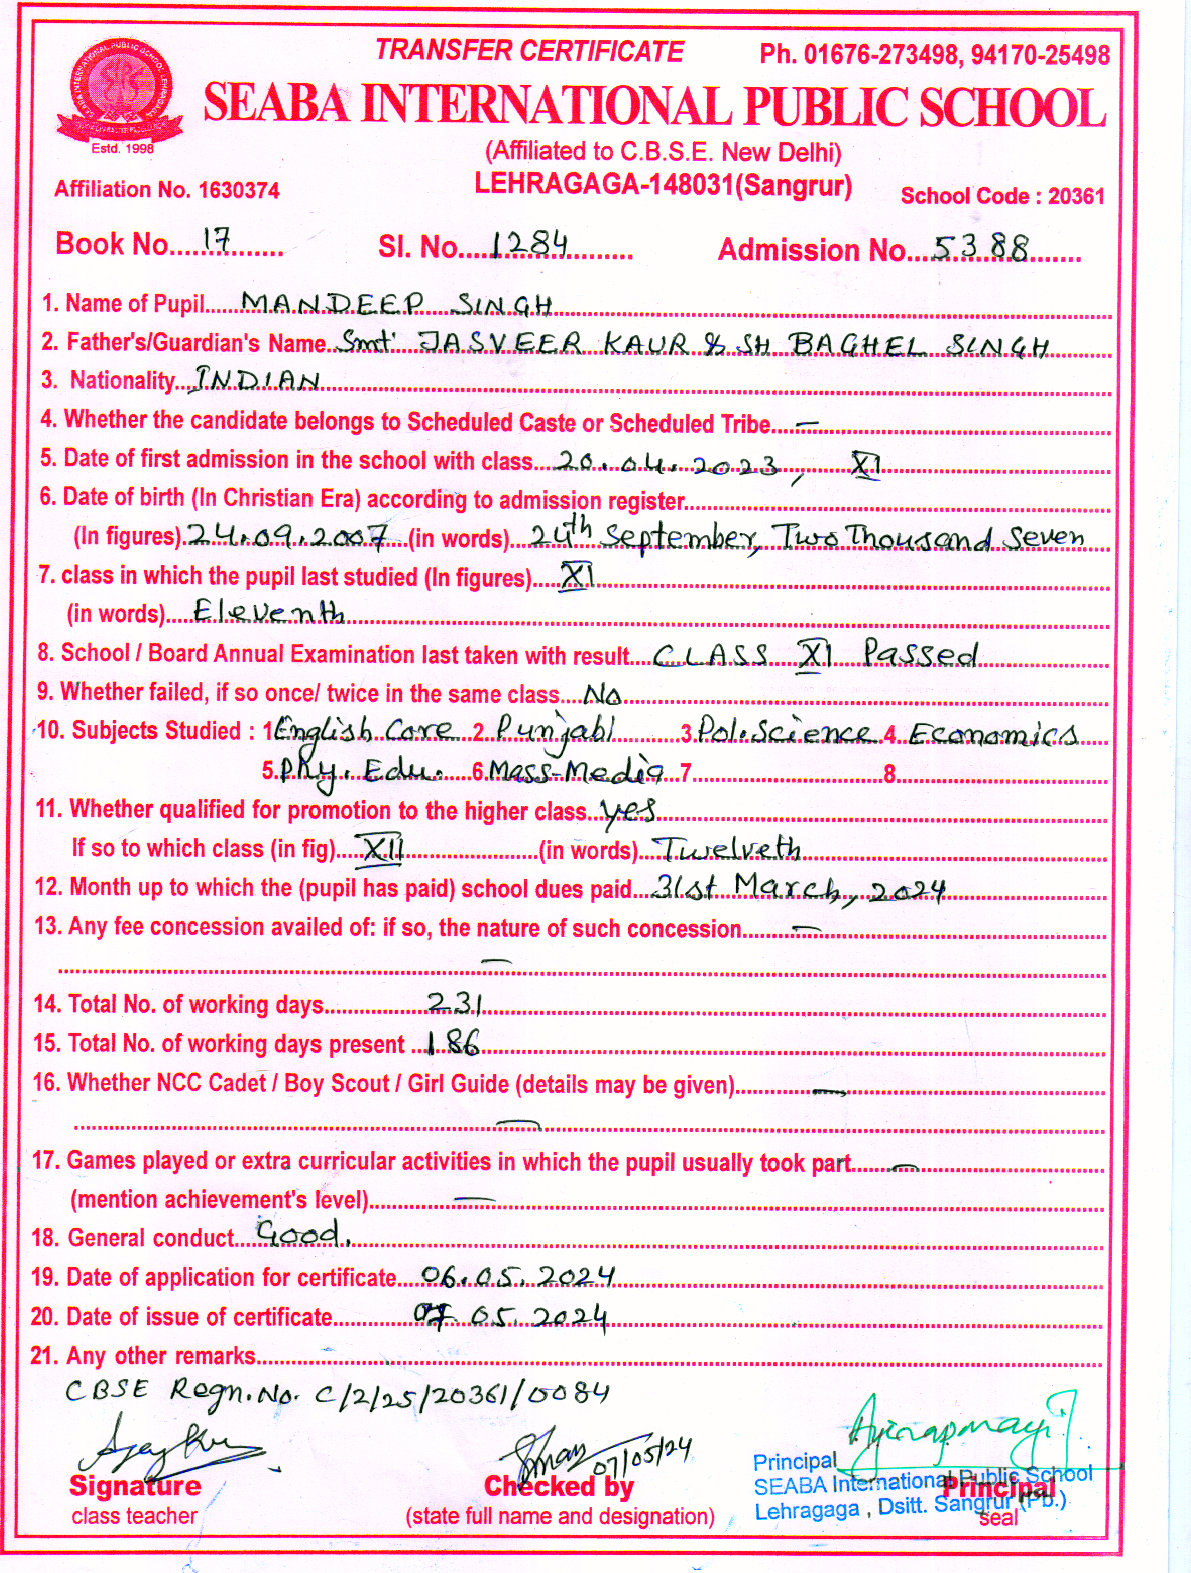 TRANSFER CERTIFICATE
Ph. 01676-273498, 94170-25498
SEABA INTERNATIONAL PUBLIC SCHOOL
Estd. 1998
(Affiliated to C.B.S.E. New Delhi)
Affiliation No. 1630374
LEHRAGAGA-148031(Sangrur)
School Code : 20361
Book No....17....... Sl. No....1284......... Admission No...5388.......
1. Name of Pupil......MANDEEP SINGH
2. Father's/Guardian's Name..Smt JASVEER KAUR & SH BAGHEL SINGH
3. Nationality...INDIAN
4. Whether the candidate belongs to Scheduled Caste or Scheduled Tribe....—
5. Date of first admission in the school with class...20.04.2023, XI
6. Date of birth (In Christian Era) according to admission register
(In figures).24.09.2007...(in words)...24th September, Two Thousand Seven
7. class in which the pupil last studied (In figures).....XI
(in words).....Eleventh
8. School / Board Annual Examination last taken with result...CLASS XI Passed
9. Whether failed, if so once/ twice in the same class....No
10. Subjects Studied : 1English Core 2. Punjabi 3.Pol.Science 4. Economics
5.Phy. Edu. 6.Mass-Media 7 8
11. Whether qualified for promotion to the higher class...yes
If so to which class (in fig)....XII (in words)...Twelveth
12. Month up to which the (pupil has paid) school dues paid...31st March, 2024
13. Any fee concession availed of: if so, the nature of such concession........—
—
14. Total No. of working days.................231
15. Total No. of working days present ...186
16. Whether NCC Cadet / Boy Scout / Girl Guide (details may be given)............—
—
17. Games played or extra curricular activities in which the pupil usually took part.......—
(mention achievement's level)..............—
18. General conduct....Good.
19. Date of application for certificate....06.05.2024
20. Date of issue of certificate..............07.05.2024
21. Any other remarks
CBSE Regn.No. C/2/25/20361/0084
07/05/24
Signature
class teacher
Checked by
(state full name and designation)
Principal
SEABA International Public School
Lehragaga , Dsitt. Sangrur (Pb.)
Principal
seal